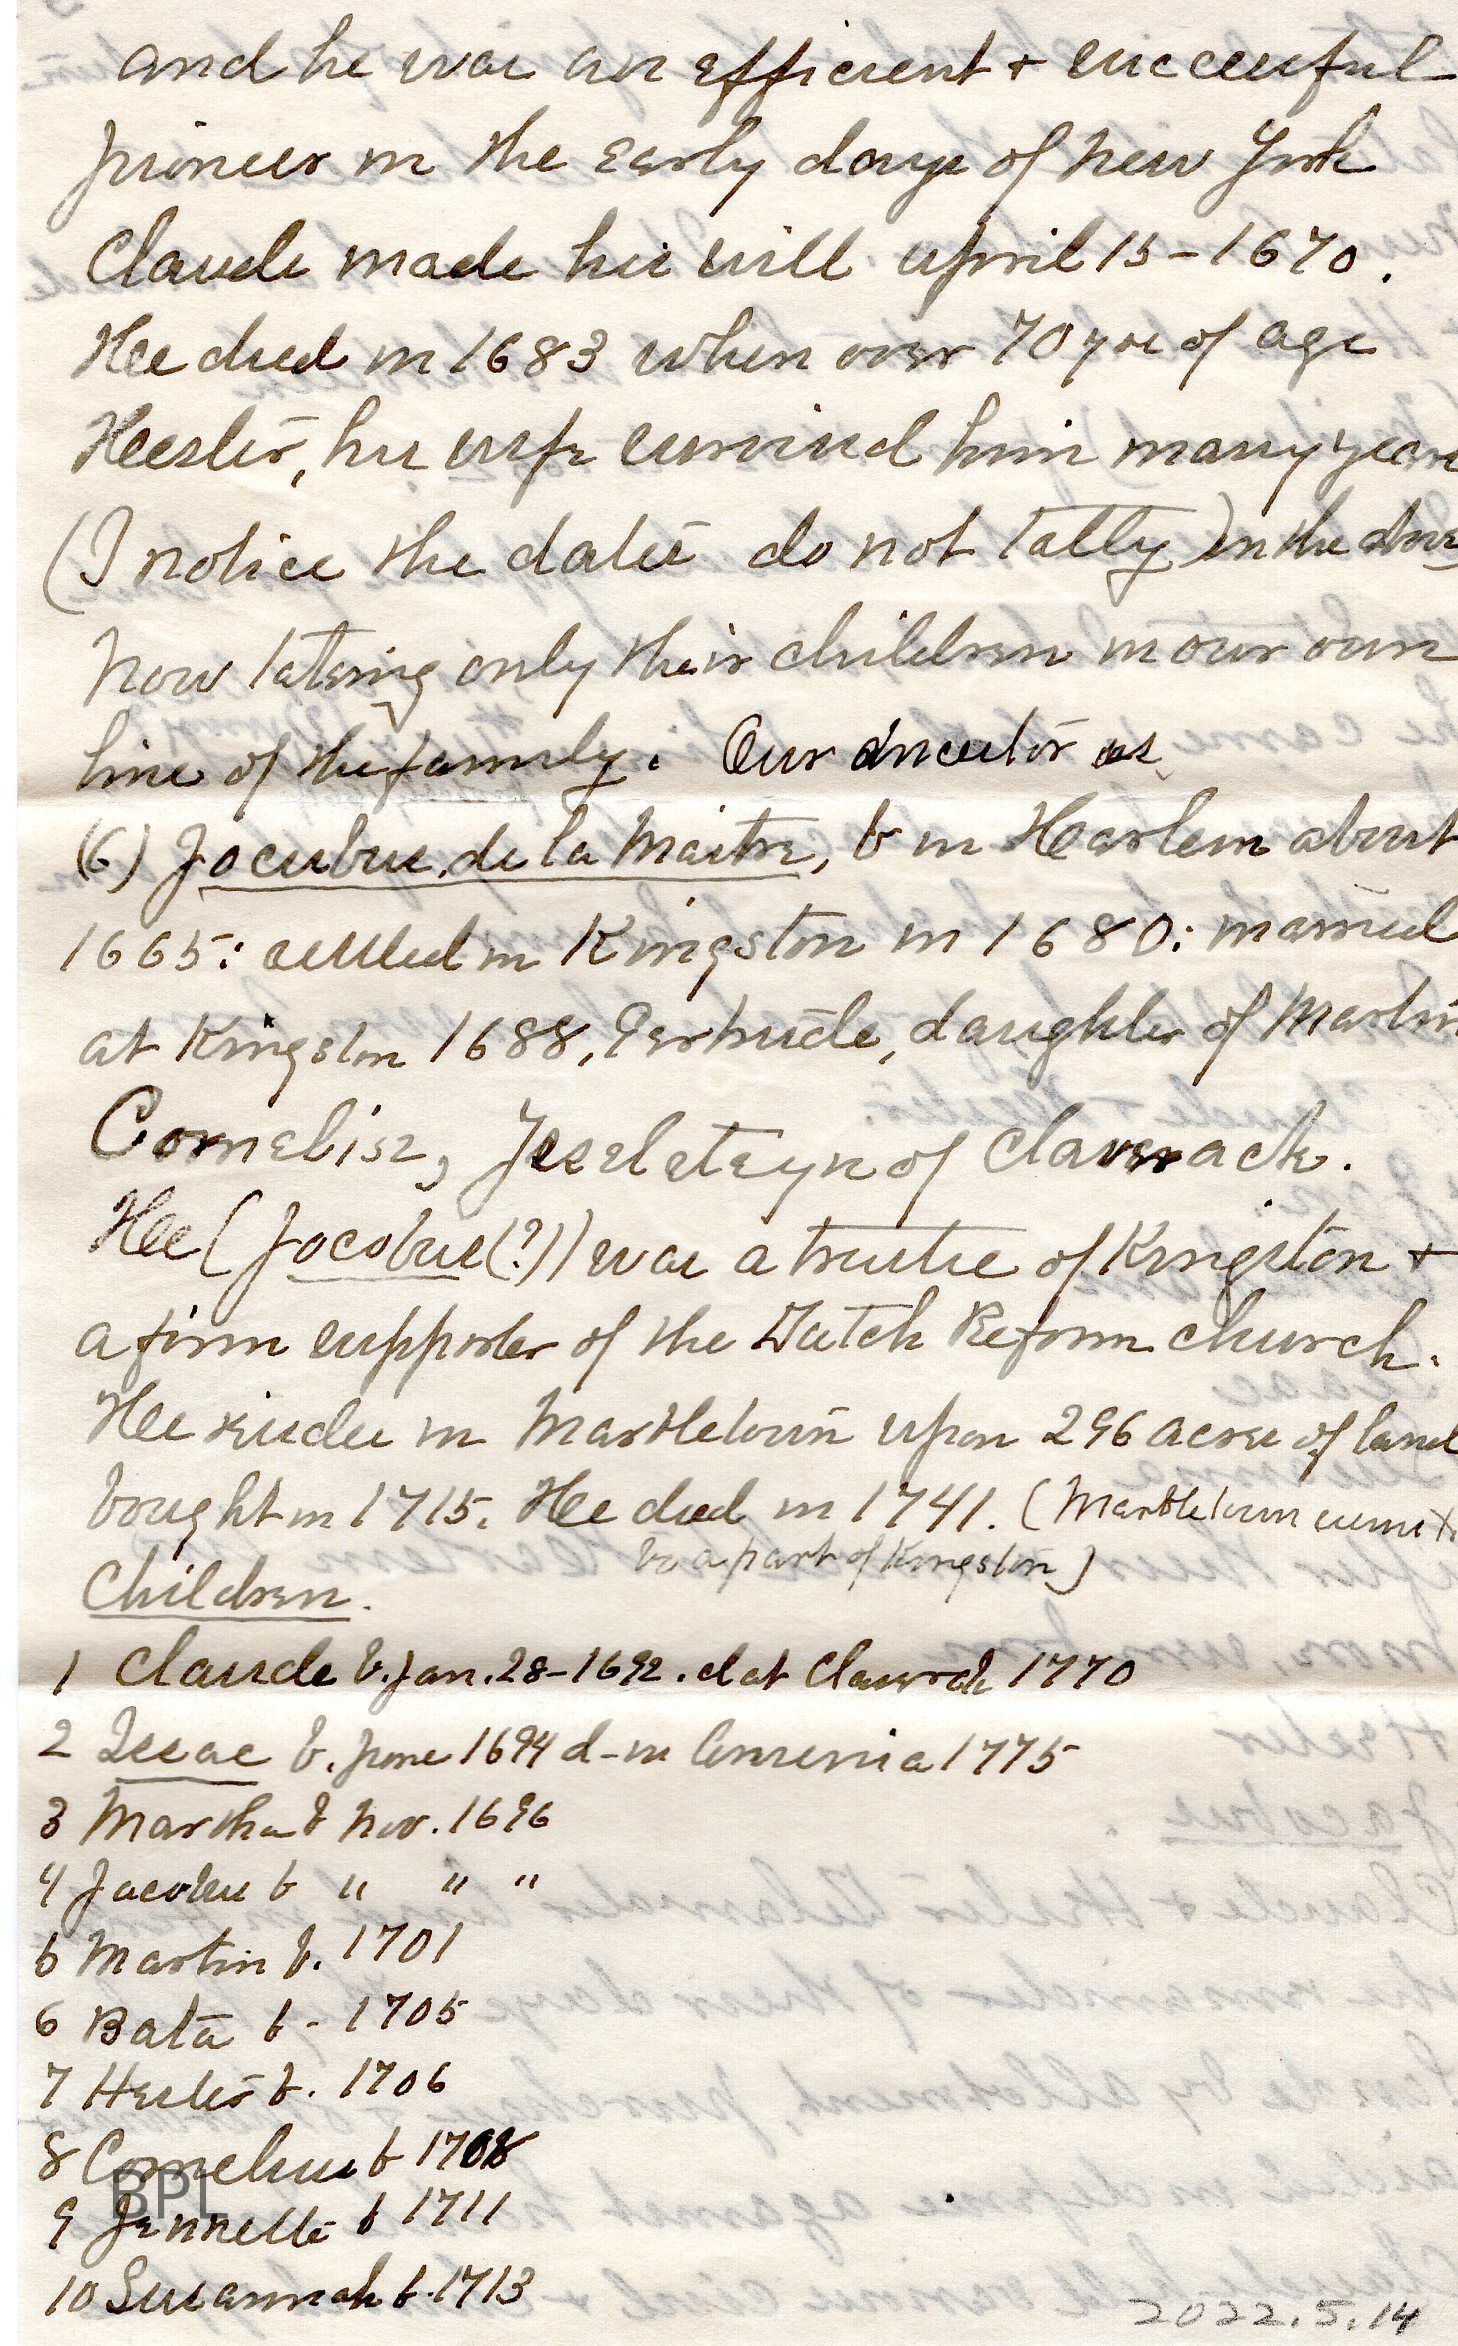 and he was an efficient + successful
pioneer in the early days of New York
Claude made his will April 15-1670.
Hee died in 1683 when over 70 yrs of age
Heester, his wife survived him many years
(I notice the dates do not tally) in the
Now taking only their children in our own
line of the family. Our ancestor is
(6) Jacubus de la Maitre, b in Harlem about
1665: settled in Kingston in 1680: married
at Kingston 1688, Gertrude, daughter of Martin
Cornelisz, Jsselsteyn of Claverack.
Hee (Jacobus(?)) was a trustee of Kingston +
a firm supporter of the Dutch Reform church.
Hee resides in Marbletown upon 296 acres of land
bought in 1715. Hee died in 1741. (Marbletown seems to
be a part of Kingston)
Children.
1 Claude b. Jan. 28-1692. d at 1770
2 Isaac b. June 1694 d-in 1775
3 Martha b Nov. 1696
4 Jacobus b " " "
5 Martin b. 1701
6 Bata b- 1705
7 Hester b. 1706
8 Cornelius b 1708
BPL
9 Jennette b 1711
10 Susannah b-1713
2022.5.14